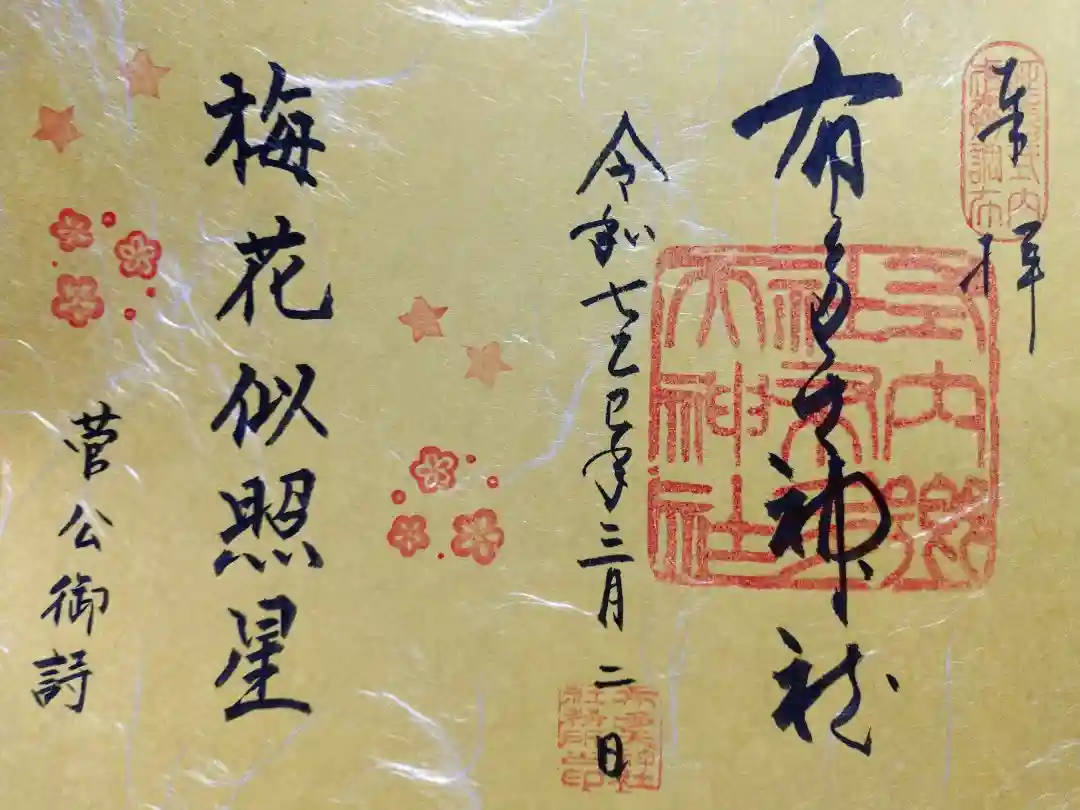 奉拝
延喜式内
武蔵調布
布多天神社
式内郷
社布多
天神社
令和七乙巳年三月二日
社務所印
梅花似照星
菅公御詩